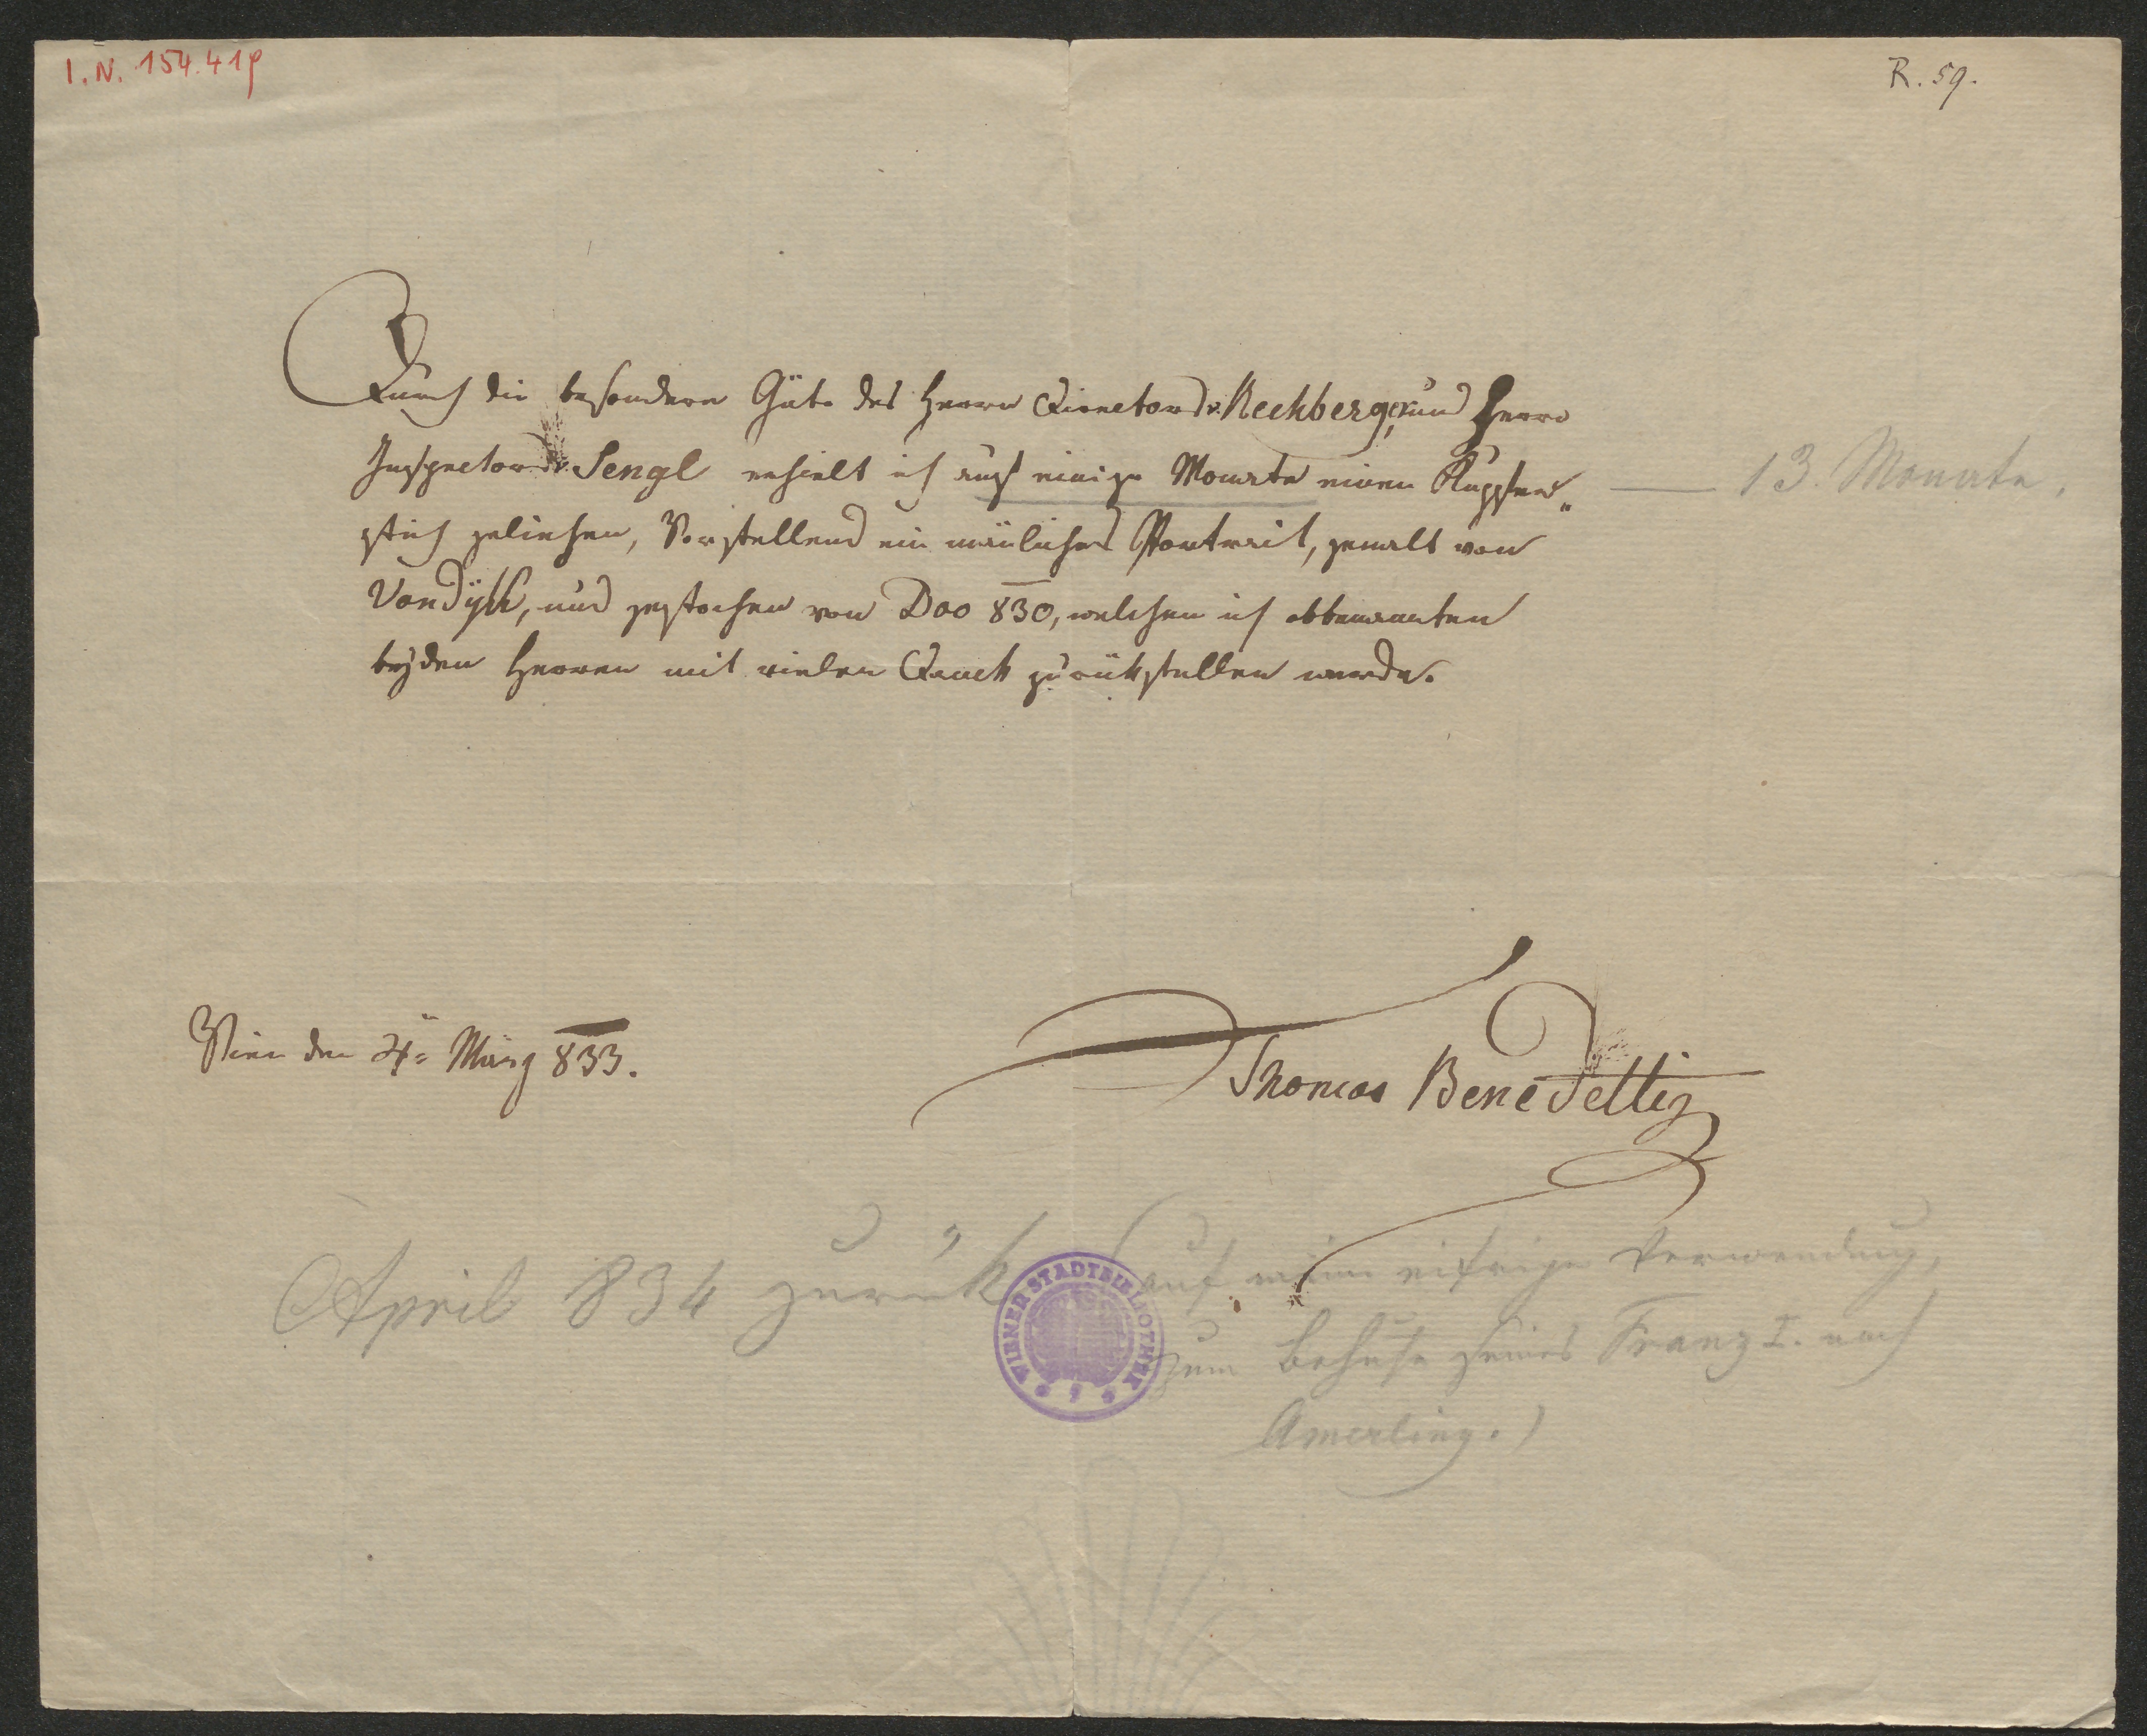 I.N. 154.419
R. 59.
Durch die besondere Güte des Herrn Director v. Rechberger, und Herrn
Inspector v. Sengl erhielt ich auf einige Monate einen Kupfer„
— 13 Monate.
stich geliehen, Vorstellend ein mänliches Portrait, gemalt von
Vandÿck, und gestochen von Doo 830, welchen ich obbenanten
beÿden Herren mit vielen Dank zurükstellen werde.
Wien den 4n März 833.
Thomas Benedetti
April 834 zurük (auf meine eifrige Verwendung,
zum Behufe seines Franz I. nach
Amerling.)
WIENER STADTBIBLIOTHEK